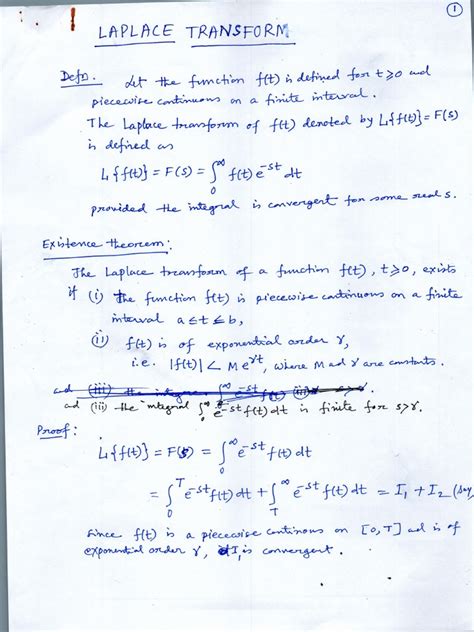 ①
LAPLACE TRANSFORM
Defn. Let the function f(t) is defined for t≥0 and
piecewise continuous on a finite interval.
The Laplace transform of f(t) denoted by L{f(t)} = F(s)
is defined as
L{f(t)} = F(s) = ∫₀^∞ f(t) e^{-st} dt
provided the integral is convergent for some real s.
Existence theorem:
The Laplace transform of a function f(t), t≥0, exists
if (i) the function f(t) is piecewise continuous on a finite
interval a≤t≤b,
(ii) f(t) is of exponential order γ,
i.e. |f(t)| < M e^{γt}, where M ad γ are constants.
ad (iii) the integral ∫₀^∞ e^{-st} f(t) dt is finite for s>γ.
Proof:
L{f(t)} = F(s) = ∫₀^∞ e^{-st} f(t) dt
= ∫₀^T e^{-st} f(t) dt + ∫_T^∞ e^{-st} f(t) dt = I₁ + I₂ (say
Since f(t) is a piecewise continous on [0,T] ad is of
exponential order γ, I₁ is convergent.